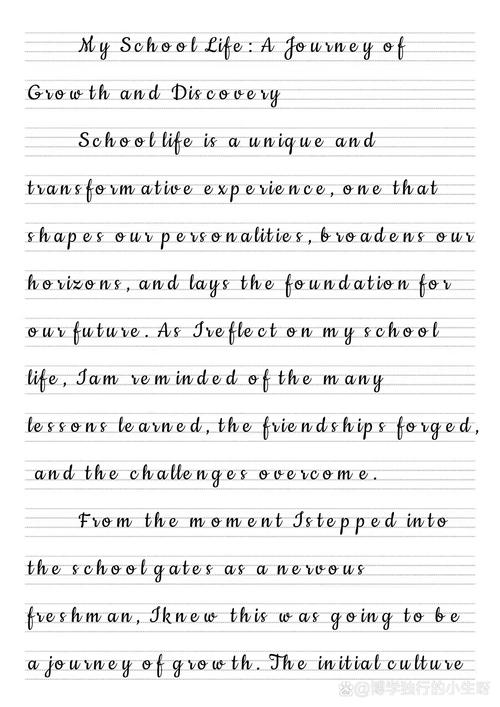 My School Life: A Journey of
Growth and Discovery
School life is a unique and
transformative experience, one that
shapes our personalities, broadens our
horizons, and lays the foundation for
our future. As I reflect on my school
life, I am reminded of the many
lessons learned, the friendships forged,
and the challenges overcome.
From the moment I stepped into
the school gates as a nervous
freshman, I knew this was going to be
a journey of growth. The initial culture
@博学独行的小生呀